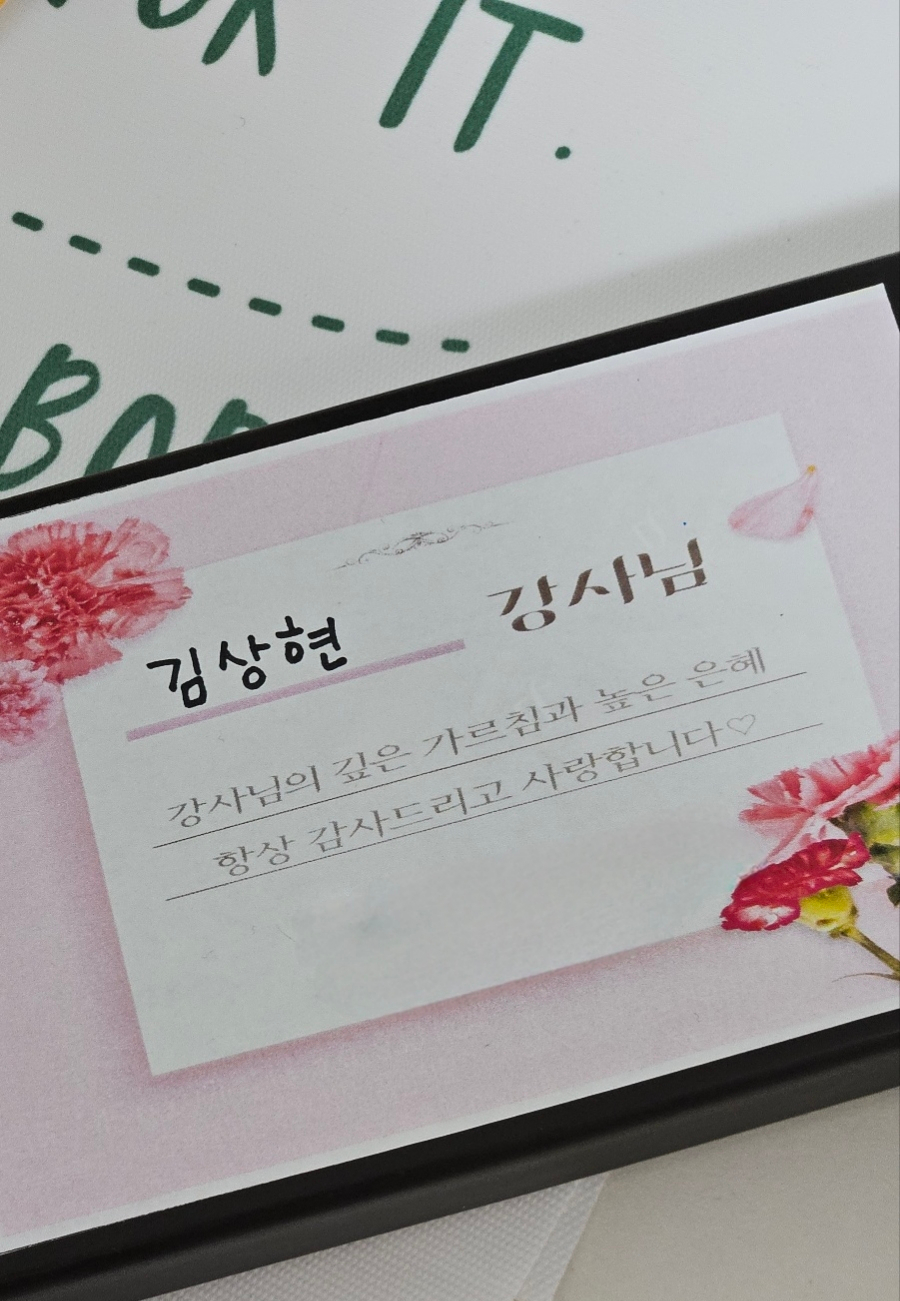 IT.
김상현 강사님
강사님의 깊은 가르침과 높은 은혜
항상 감사드리고 사랑합니다♡